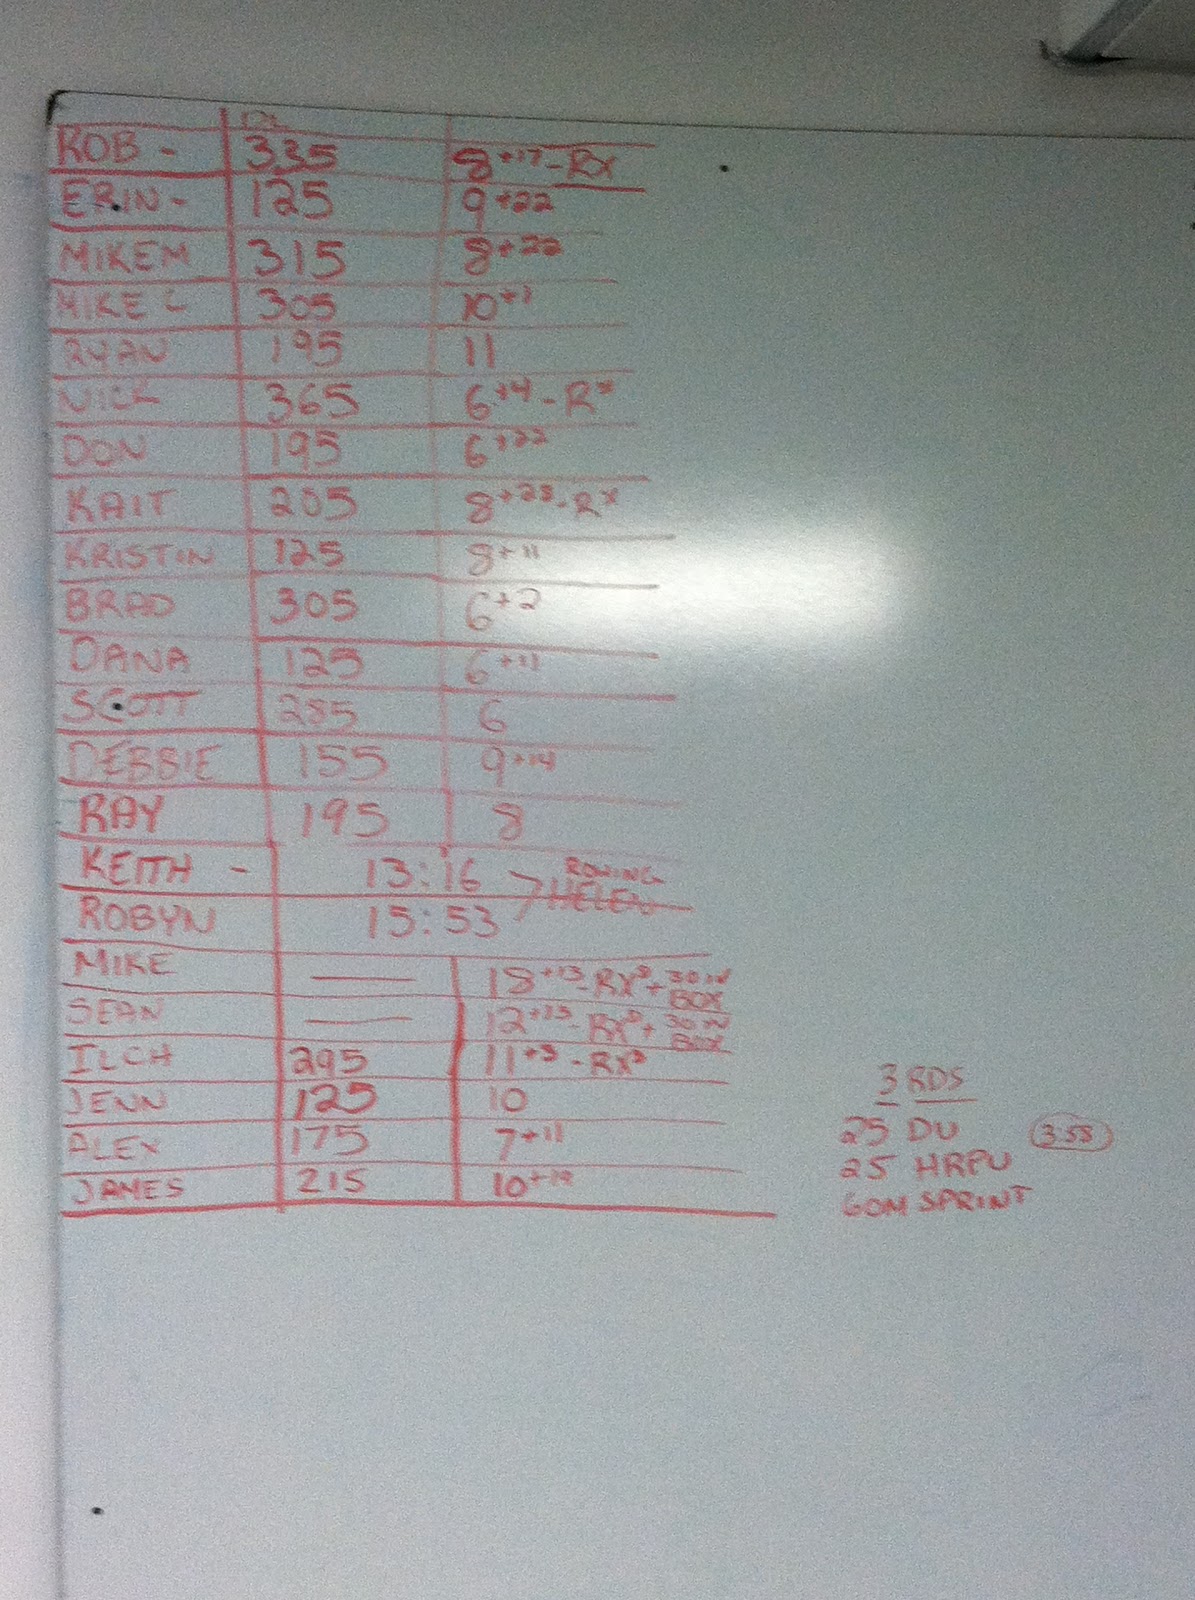 ROB - 335 8+17-RX
ERIN - 125 9+22
MIKE M 315 8+22
MIKE C 305 10+1
RYAN 195 11
NICK 365 6+4-RX
DON 195 6+22
KAIT 205 8+23-RX
KRISTIN 125 8+11
BRAD 305 6+2
DANA 125 6+11
SCOTT 285 6
DEBBIE 155 9+14
RAY 195 8
KEITH - 13:16 ROWING
ROBYN 15:53 HELEN
MIKE — 18+13-RX + 30 IN BOX
SEAN — 12+23-RX + 30 IN BOX
ILCH 295 11+3-RX
JENN 125 10
ALEX 175 7+11
JAMES 215 10+19
3 RDS
25 DU 3:55
25 HRPU
60M SPRINT